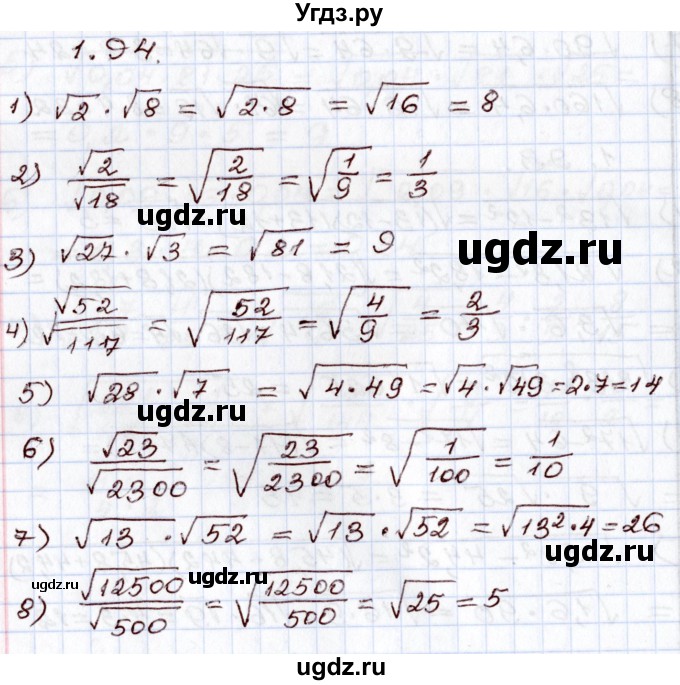 Угдз.ру
1.94.
1) √2 · √8 = √(2·8) = √16 = 8
2) √2/√18 = √(2/18) = √(1/9) = 1/3
ugdz.ru
ugdz.ru
3) √27 · √3 = √81 = 9
4) √52/√117 = √(52/117) = √(4/9) = 2/3
5) √28 · √7 = √(4·49) = √4 · √49 = 2·7 = 14
6) √23/√2300 = √(23/2300) = √(1/100) = 1/10
7) √13 · √52 = √13 · √52 = √(13²·4) = 26
ugdz.ru
ugdz.ru
ugdz.ru
8) √12500/√500 = √(12500/500) = √25 = 5
ugdz.ru